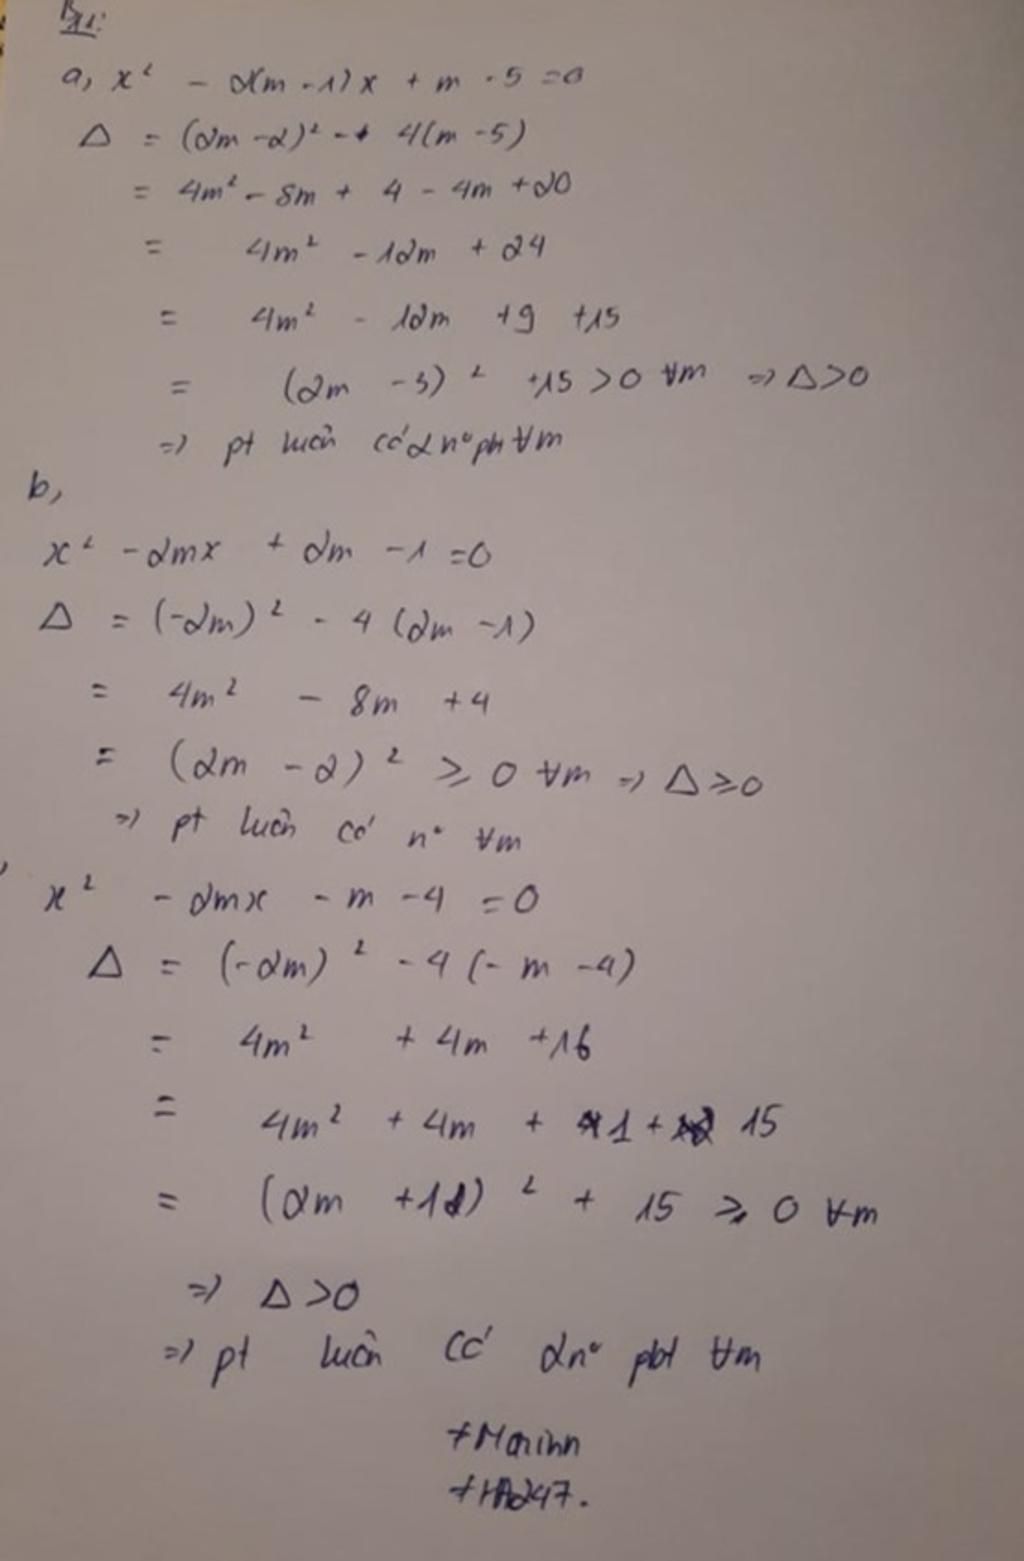 B1:
a, x² - 2(m - 1)x + m - 5 = 0
Δ = (2m - 2)² - 4(m - 5)
= 4m² - 8m + 4 - 4m + 20
= 4m² - 12m + 24
= 4m² - 12m + 9 + 15
= (2m - 3)² + 15 > 0 ∀m => Δ > 0
=> pt luôn có 2 n° pb ∀m
b,
x² - 2mx + 2m - 1 = 0
Δ = (-2m)² - 4 (2m - 1)
= 4m² - 8m + 4
= (2m - 2)² ⩾ 0 ∀m => Δ ⩾ 0
=> pt luôn có n° ∀m
x² - 2mx - m - 4 = 0
Δ = (-2m)² - 4 (- m - 4)
= 4m² + 4m + 16
= 4m² + 4m + 1 + 15
= (2m + 1)² + 15 ⩾ 0 ∀m
=> Δ > 0
=> pt luôn có 2n° pbt ∀m